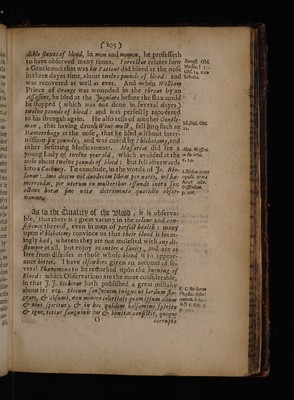 (105)
dible fluxes of blood, in men and women, he professeth
to have observed many times. Forestus relates how
a Gentleman that was his Patient did bleed at the nose
in three dayes time, about twelve pounds of blood: and
was recovered as well as ever. And when William
Prince of Orange was wounded in the throat by an
Assassine, he bled at the Jugular before the flux could
be stopped (which was not done in several dayes)
twelve pounds of blood: and was perfectly recovered
to his strength again. He also tells of another Gentle-
man, that having drunk Wine-must, fell into such an
Hæmorrhagy at the nose, that he bled without inter-
mission six pounds, and was cured by phlebotomy, and
other besitting Medicaments. Massarias did see a
young Lady of twelve year old, which avoided at the
nose about twelve pounds of blood: but fell afterwards
into a Cachexy. To conclude, in the words of Jo. Rio-
lanus: Imo decem vel duodecim libras per nares, vel hæ-
morrhoidas, per uterum in mulieribus effundi intra sex
octove horas sine vitæ detrimento quotidie obser-
vamus.
As to the Quality of the Blood, it is observa-
ble, that there is a great variety in the colour and con-
sistence thereof, even in men of perfect health: many
upon Phlebotomy convince us that their blood is seem-
ingly bad, whereas they are not molested with any di-
stemper at all, but enjoy as entire a sanity, and are as
free from diseases as those whose blood is to appear-
ance better. I have elsewhere given an account of se-
veral Phænomena to be remarked upon the burning of
Blood: which Observations are the more considerable,
in that J. J. Becherus hath published a great mistake
about it: viz. Siccum sanguinem in ignem ut lardum fla-
grare, & absumi, non minori celeritate quam ipsum oleum
& vini spiritus; & in hoc quidem balsamino spiritu
& igne, totius sanguinis vis & bonitas consistit, quoque
O
corruptos
Forest. Obs.
Medic. l. 1.
Obs. 14. cum
Scholiis.
Id. ibid. Obs.
11.